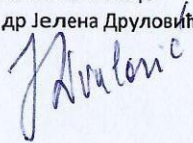 др Јелена Друловић
J Drulović